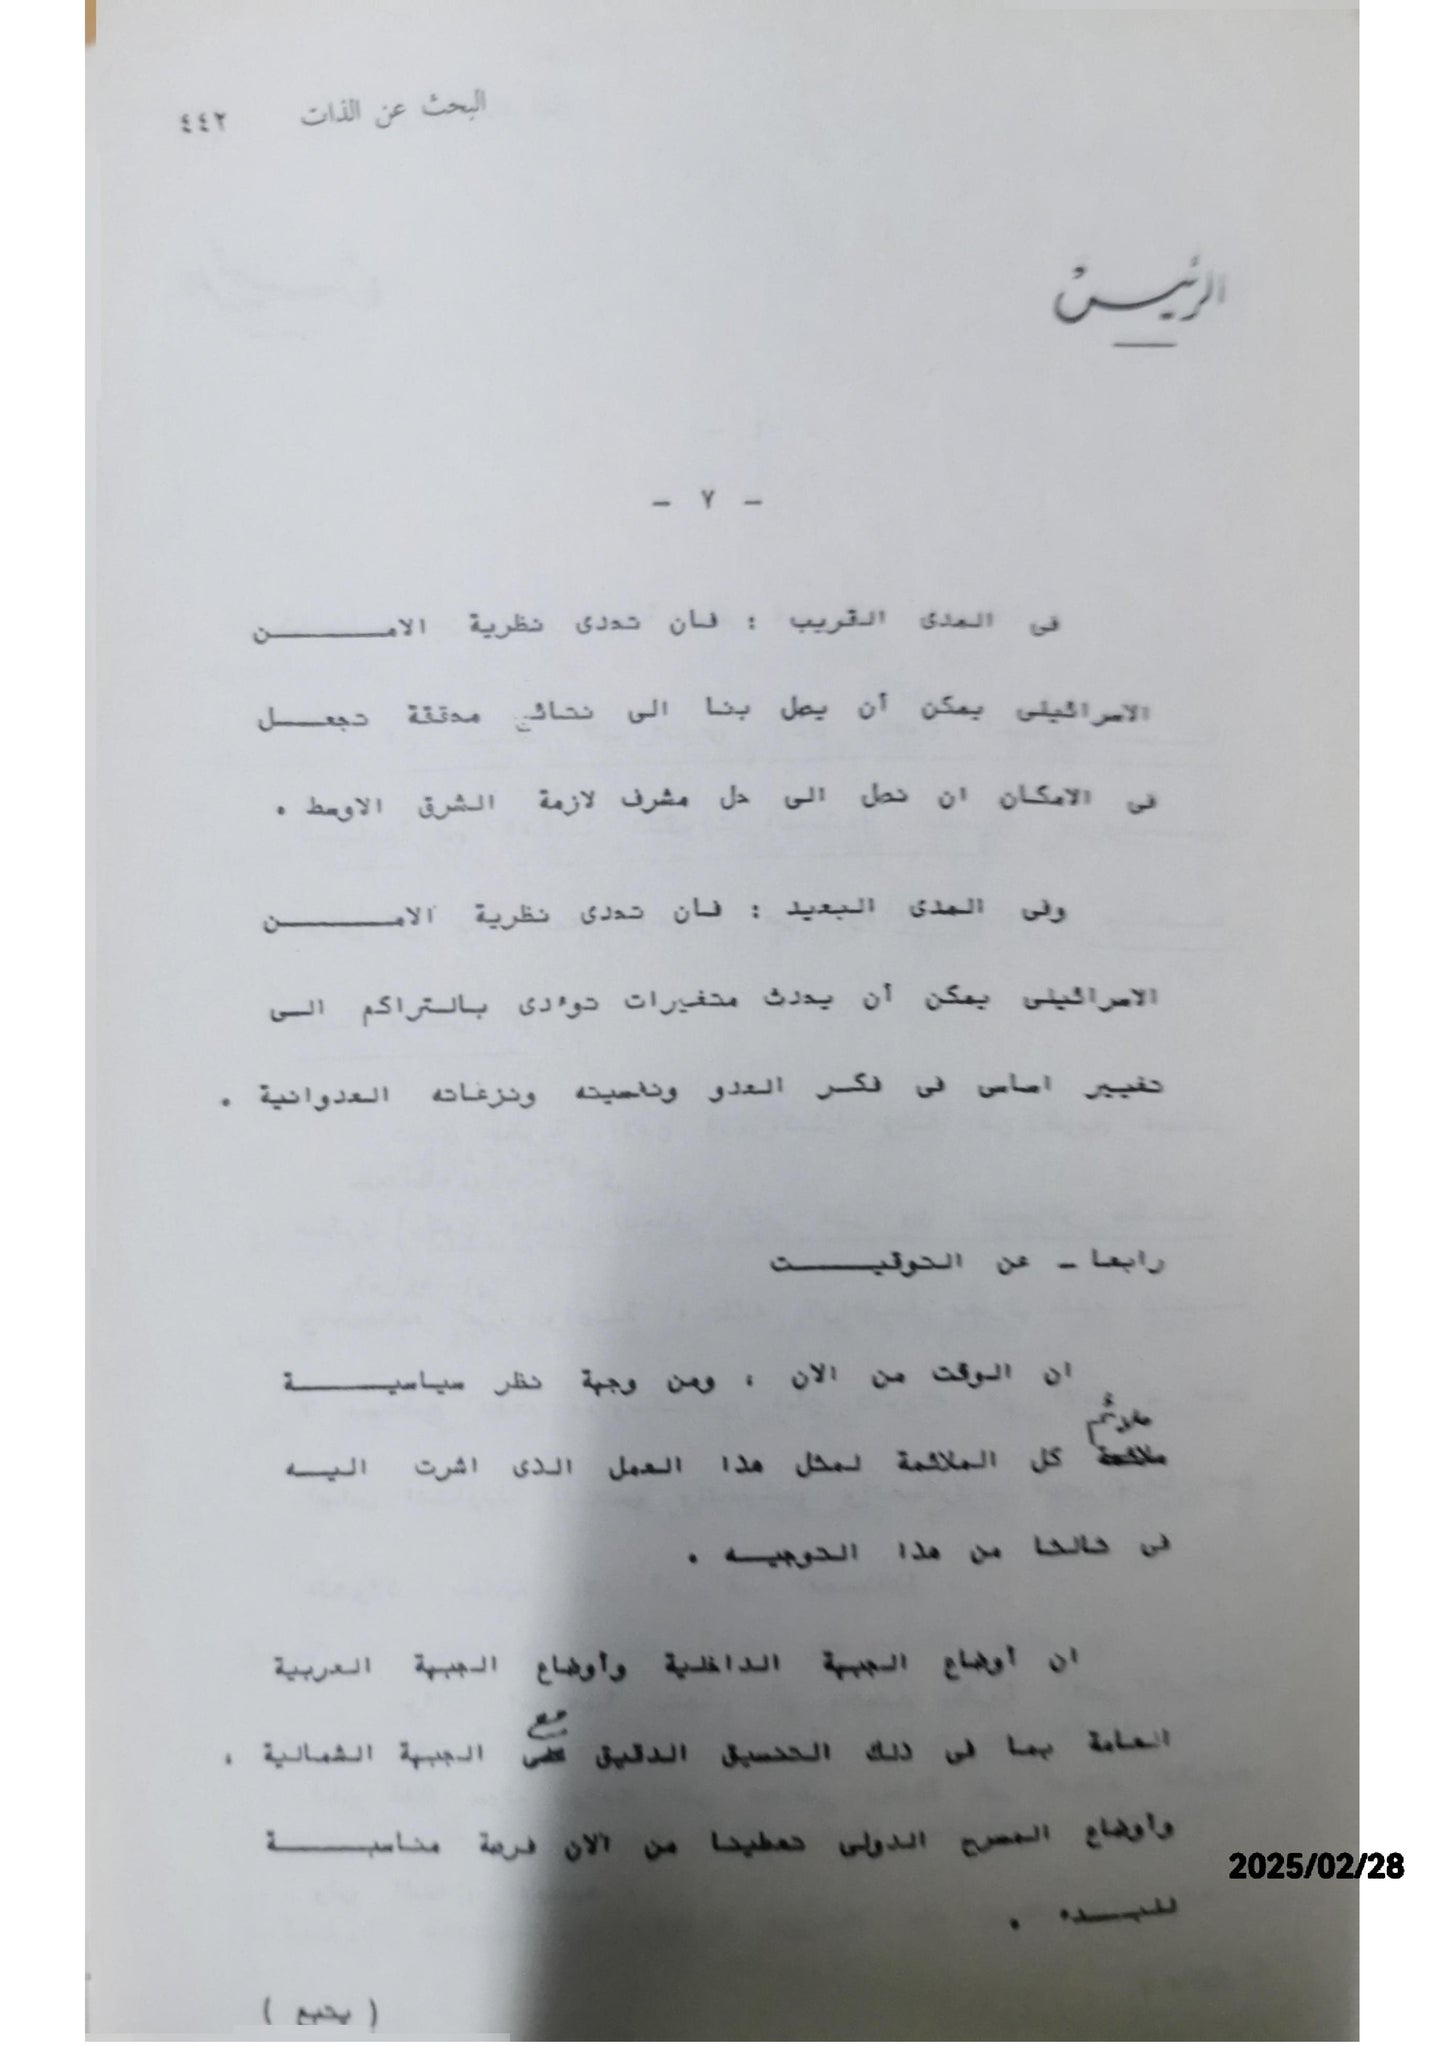 البحث عن الذات ٤٤٢
الرئيس
- ٧ -
فى المدى القريب : فان تحدى نظرية الامن
الاسرائيلى يمكن أن يصل بنا الى نتائج محققة تجعل
فى الامكان ان نصل الى حل مشرف لازمة الشرق الاوسط .
وفى المدى البعيد : فان تحدى نظرية الامن
الاسرائيلى يمكن أن يحدث متغيرات توءدى بالتراكم الى
تغيير اساسى فى فكر العدو ونفسيته ونزعاته العدوانية .
رابعا - عن التوقيت
ان الوقت من الان ، ومن وجهة نظر سياسية
ملائم
ملائمة كل الملائمة لمثل هذا العمل الذى اشرت اليه
فى ثالثا من هذا التوجيه .
ان أوضاع الجبهة الداخلية وأوضاع الجبهة العربية
مع
العامة بما فى ذلك التنسيق الدقيق الجبهة الشمالية ،
وأوضاع المسرح الدولى تعطينا من الان فرصة مناسبة
للبدء .
( يتبع )
2025/02/28